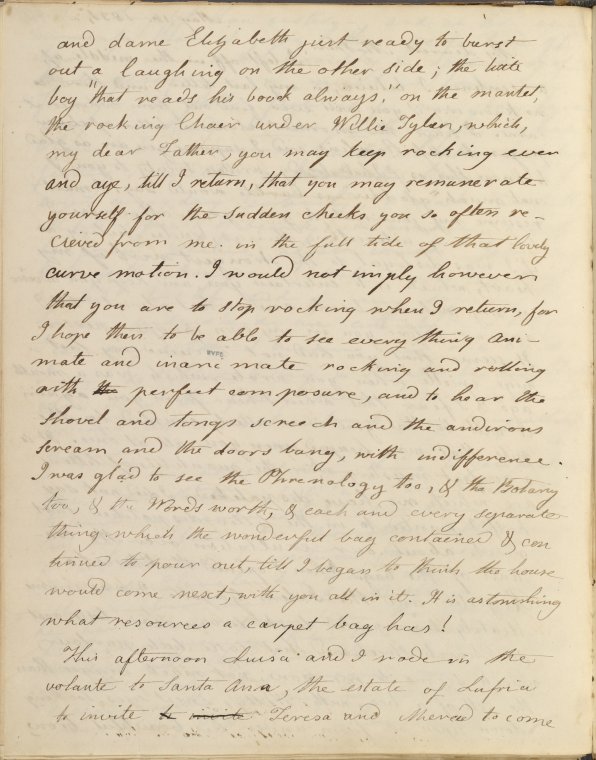 and dame Elizabeth just ready to burst
out a laughing on the other side; the little
boy "that reads his book always," on the mantel,
the rocking Chair under Willie Tyler, which,
my dear Father, you may keep rocking ever
and aye, till I return, that you may remunerate
yourself for the sudden checks you so often re-
cieved from me in the full tide of that lovely
curve motion. I would not imply however
that you are to stop rocking when I return, for
I hope then to be able to see every thing ani-
mate and inanimate rocking and rolling
with the perfect composure, and to hear the
shovel and tongs screech and the andirons
scream and the doors bang, with indifference.
I was glad to see the Phrenology too, & the Botany
too, & the Wordsworth, & each and every separate
thing which the wonderful bag contained & con
tinued to pour out, till I began to think the house
would come next, with you all in it. It is astonishing
what resources a carpet bag has!
This afternoon Luisa and I rode in the
volante to Santa Ana, the estate of Lufria
to invite to invite Teresa and to come